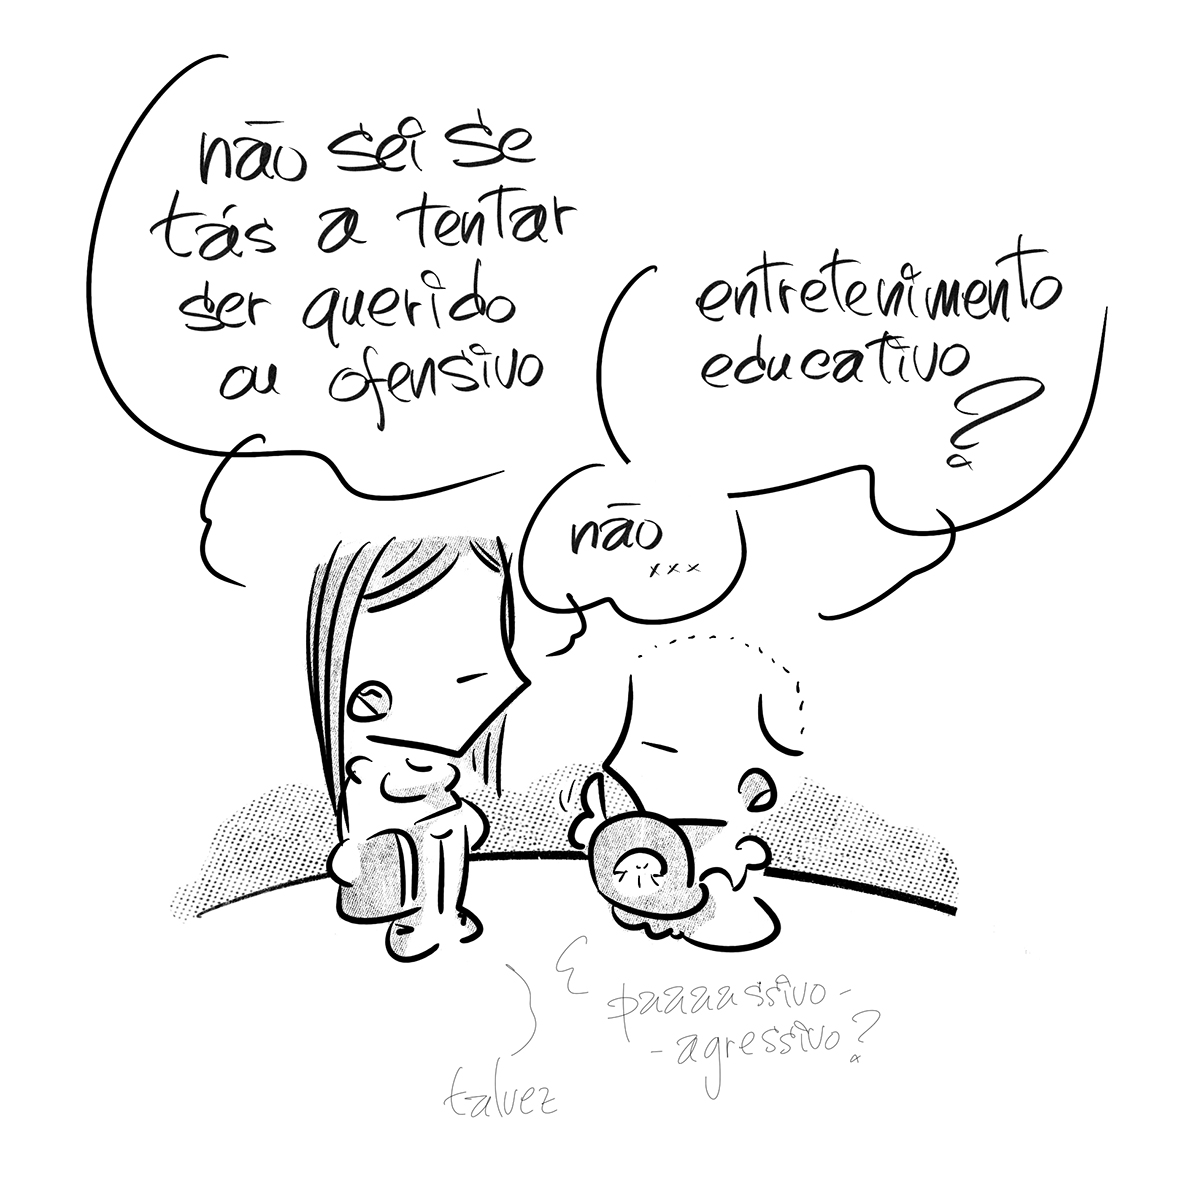 não sei se
tás a tentar
ser querido
ou ofensivo
entretenimento
educativo
?
não
xxx
paaaassivo-
-agressivo?
talvez